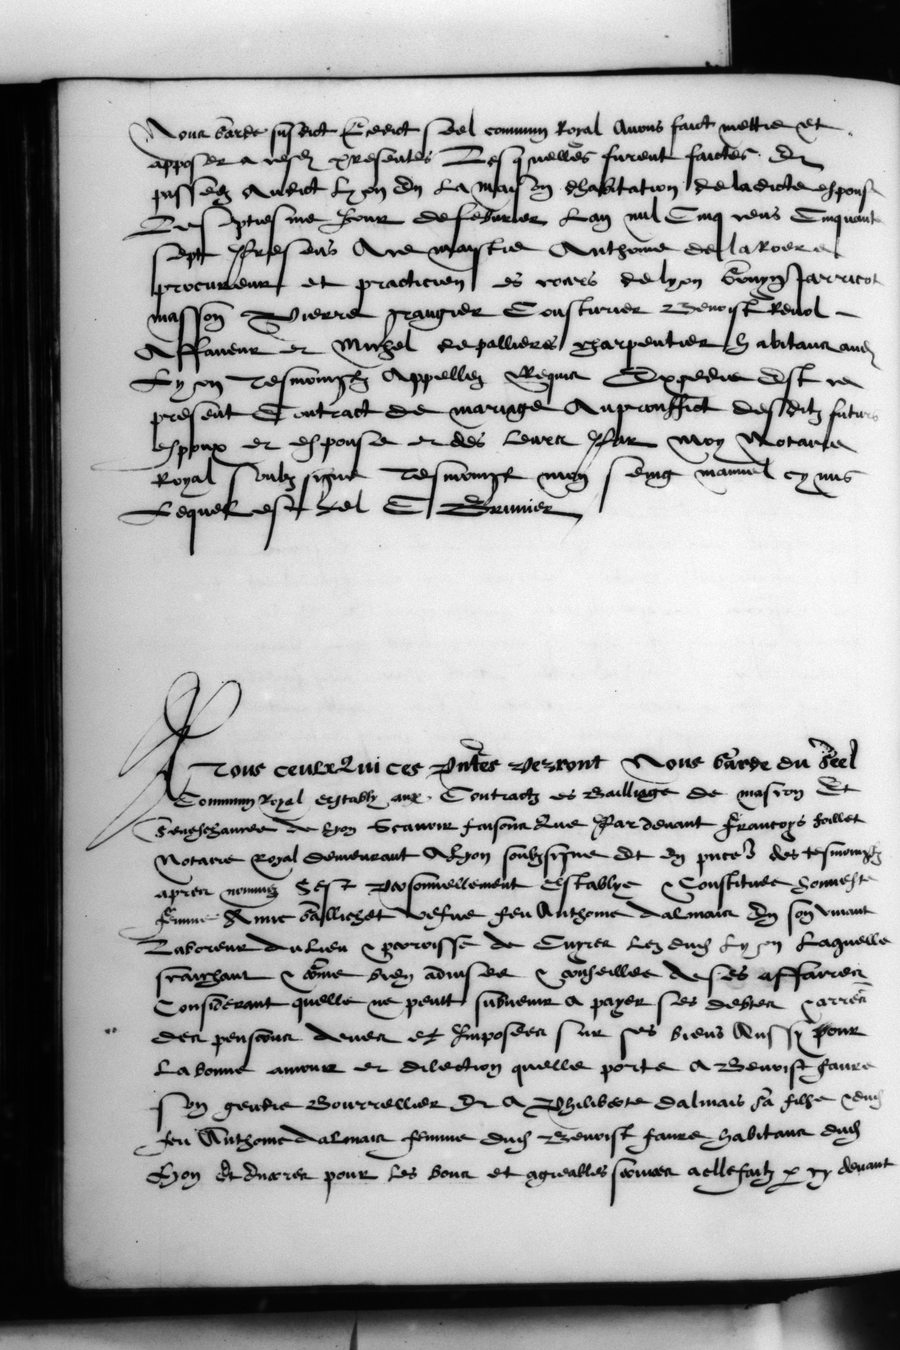 Nous garde susdict Ledict seel commun Royal Avons faict mettre et
apposer a cesd presentes Lesquelles furent faictes Et
passees Audict Lyon En La maison dhabitation de ladicte espouse
Le septiesme Jour de febvrier Lan mil Cinq cens Cinquante
sept Presens Ace maistre Anthoine de la Roere
procureur et practicien es cours de lyon Jarricot
masson Pierre graugier Cousturier Benoist Renol
Affaneur et Michel depallieres charpentier habitans aud
Lyon Tesmoingtz Appellez Requis Expedie Est ce
present Contract de mariage Auprouffict desditz futurs
espoux et espouse et des leurs Par Moy Notaire
Royal soubzsigne Tesmoing mon seing manuel cy mis
Lequel est tel C Brunier
A Tous ceulx Qui ces Pntes Verront Nous garde du seel
Commun Royal estably aux Contractz es Bailliage de mascon Et
Seneschaucee de Lyon Scavoir faisons Que Pardevant Francoys
Notaire Royal demeurant A Lyon soubzsigne Et En pnce des tesmoingtz
apres nommez Sest Personnellement Establye & Constituee honneste
femme Anne vefue feu Anthoine dalmais En son vivant
Laboreur du lieu & parroisse de Cuyres Lez dud Lyon Laquelle
scaichant & bien advisee & conseillee de ses affaires
Considerant quelle ne peult subvenir a payer ses debtes & arres
des pensions deues et Imposees sur ses biens Aussy pour
La bonne amour et dilection quelle porte A Benoist faure
son gendre Bourrellier Et A Philiberte dalmais sa fille & dud
feu Anthoine dalmais femme dud Benoist faure habitans dud
Lyon Et pour les bons et agreables services a elle faitz p cy devant